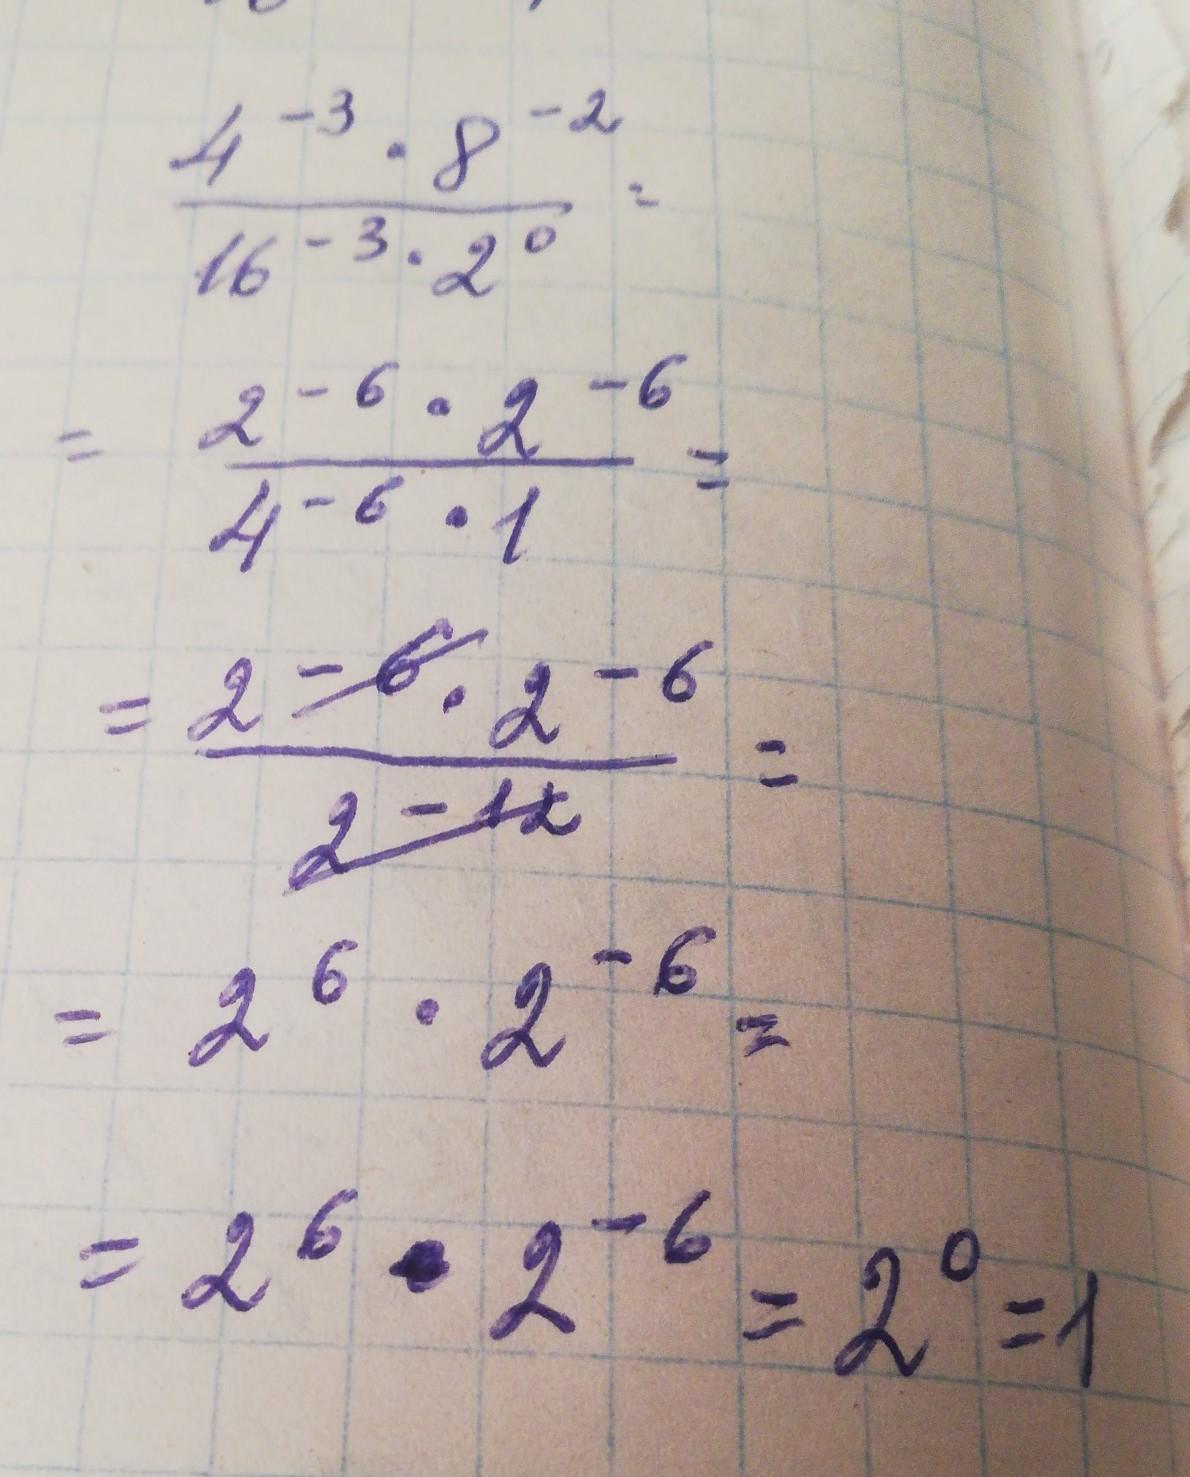 4^-3 · 8^-2 / 16^-3 · 2^0 =
= 2^-6 · 2^-6 / 4^-6 · 1 =
= 2^-6 · 2^-6 / 2^-12 =
= 2^6 · 2^-6 =
= 2^6 · 2^-6 = 2^0 = 1